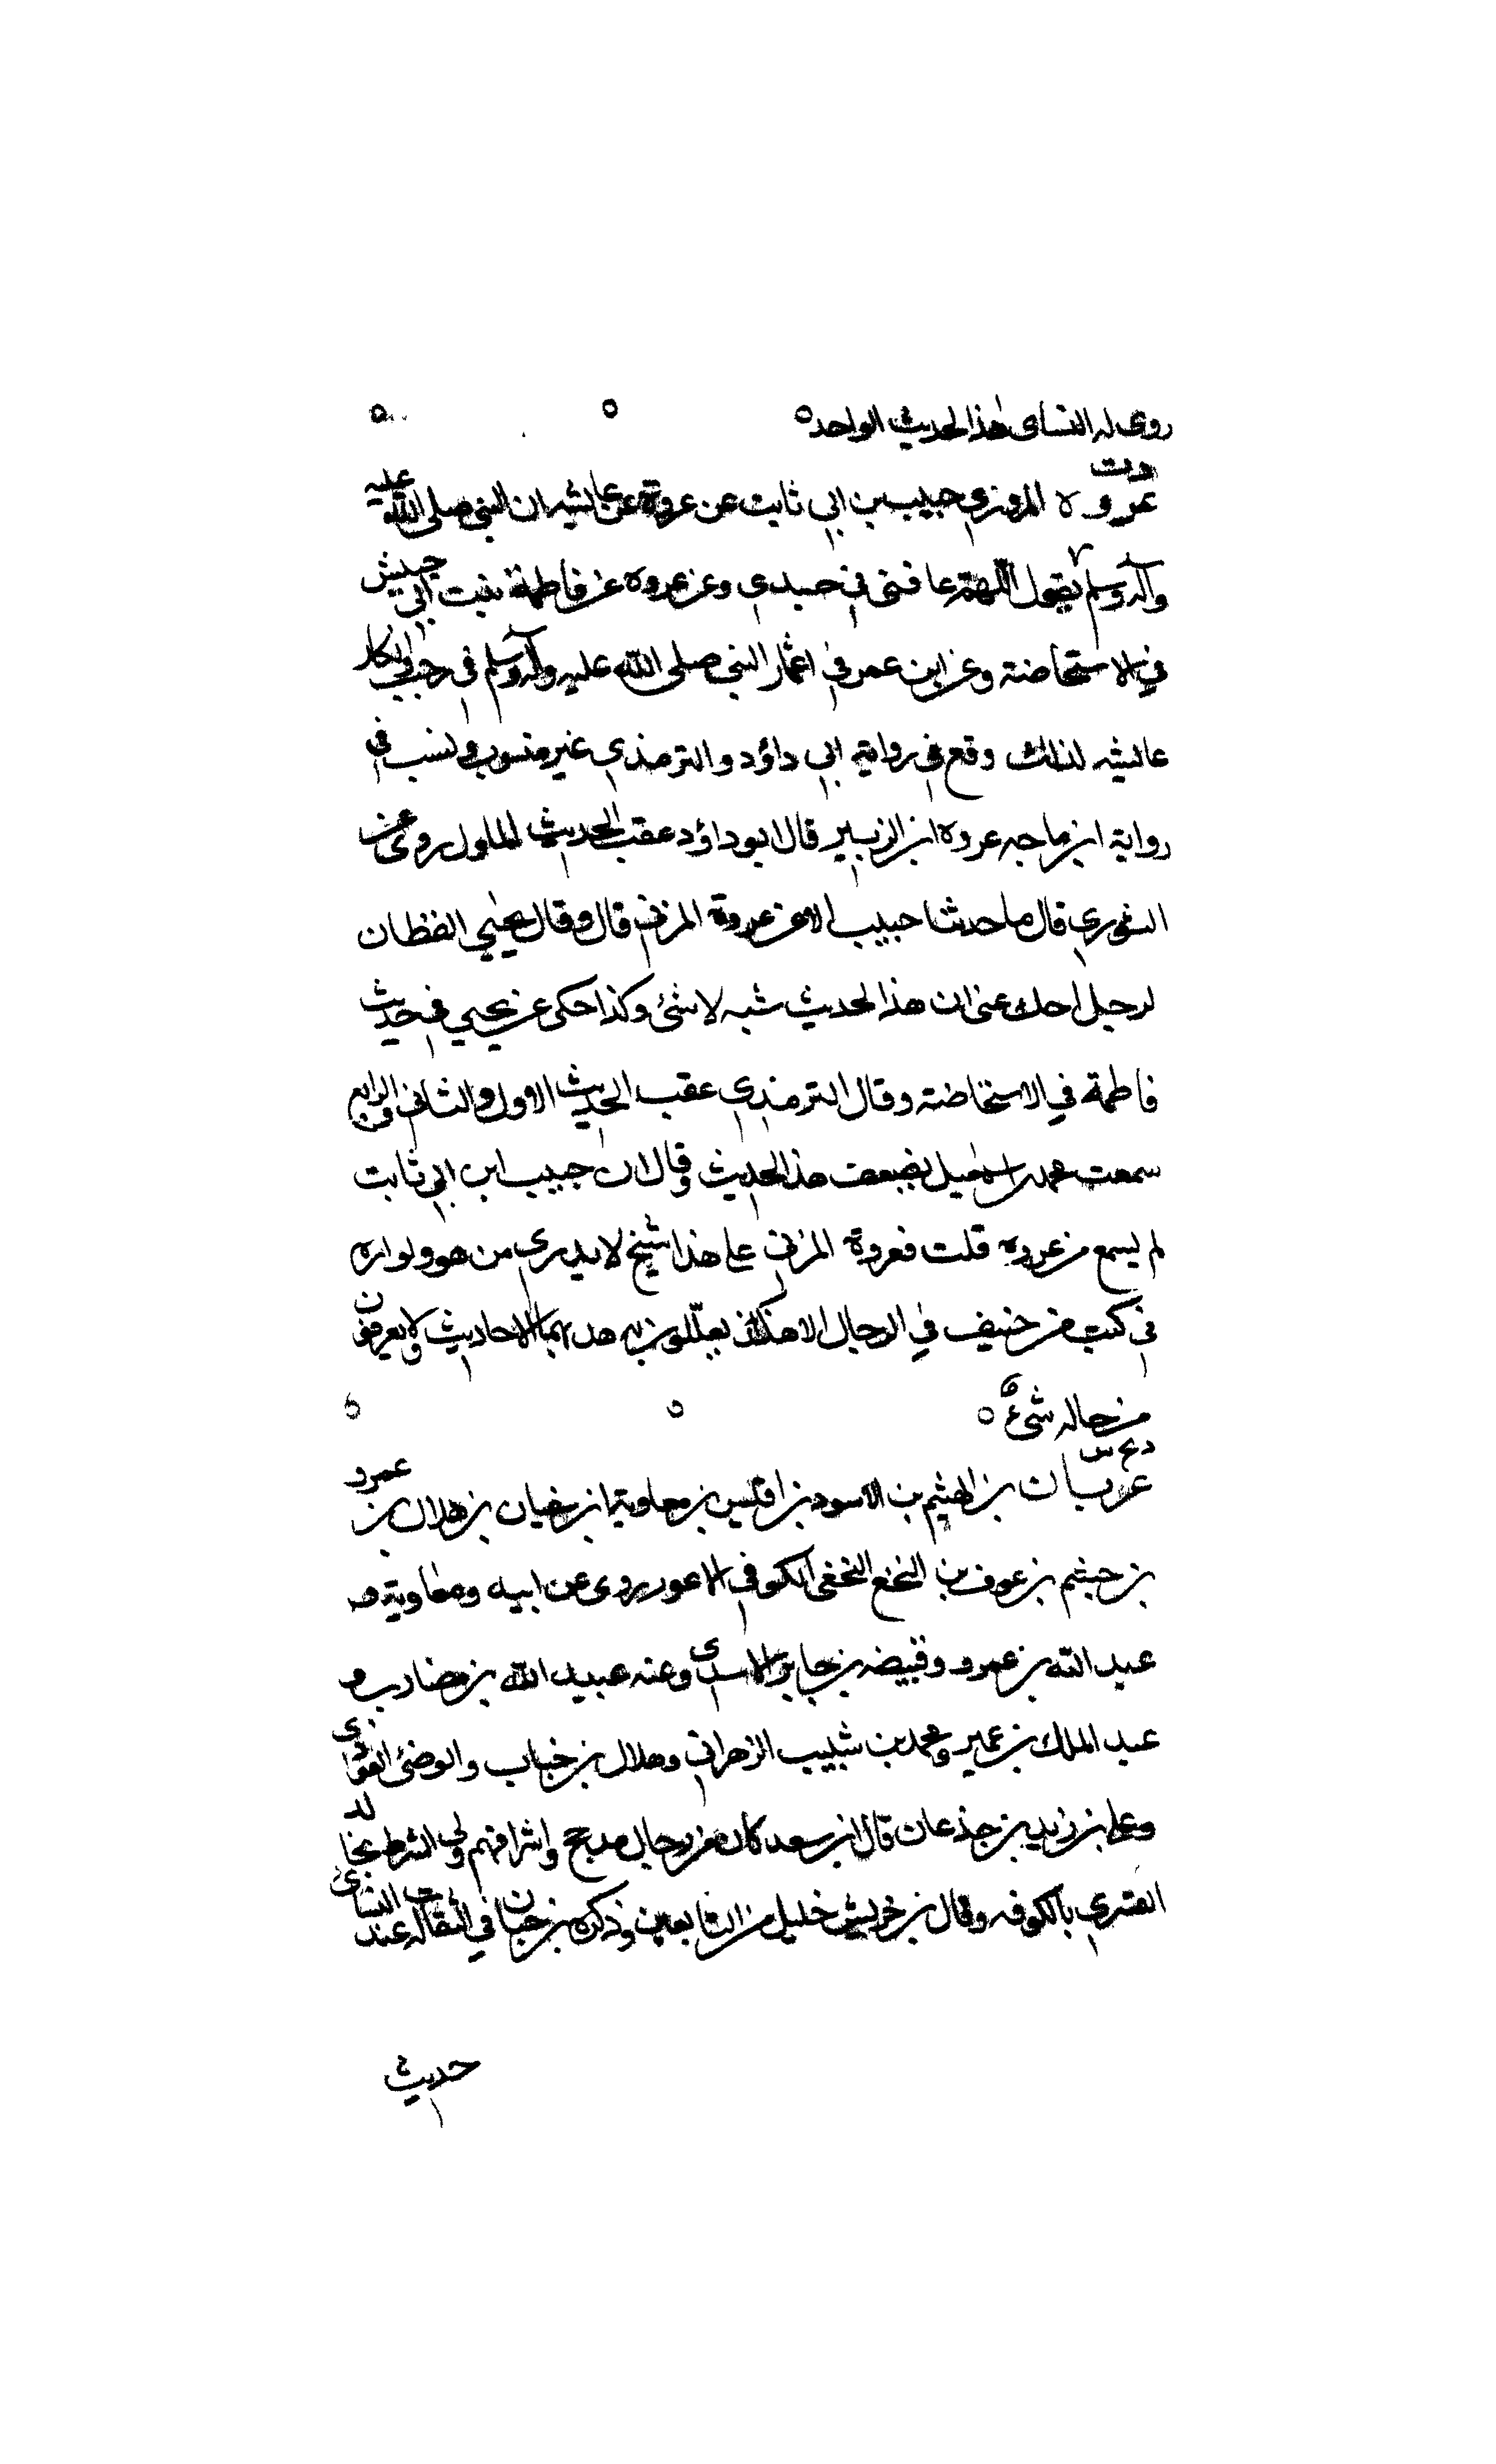 روى له النساى هذا الحديث الواحد ه ه ه
د ت
عروة المزنى حبيب بن ابى ثابت عن عروة عن عائشه ان النبى صلى الله عليه
وآله وسلم يقول اللهم عافنى فى جسدى وعن عروه عن فاطمة بنت ابى حبيش
فى الاستحاضة وعن ابن عمر فى اعتمار النبى صلى الله عليه وآله وسلم فى رجب وانكار
عائشه لذلك وقع فى رواية ابى داؤد والترمذى غير منسوب ونسب فى
رواية ابن ماجه عروه ابن الزبير قال ابو داؤد عقب الحديث الاول روى عن
الثورى قال ما حدثنا حبيب الا عن عروة المزنى قال وقال يحيى القطان
لرجل احك عنى ان هذا الحديث شبه لا شئ وكذا حكى عن يحيى فى حديث
فاطمة فى الاستحاضة وقال الترمذى عقب الحديث الاول والثانى والرابع
سمعت محمد بن اسمعيل يضعف هذا الحديث وقال ان حبيب ابن ابى ثابت
لم يسمع من عروه قلت فعروة المزنى على هذا شيخ لا يدرى من هو ولم اره
فى كتب من صنف فى الرجال الا هكذا يعللون به هذه الاحاديث ولا يعرفون
من حاله شئ ه ه ه
د ع س
عريان بن الهيثم بن الاسود بن اقيس بن معاوية ابن سفيان بن هلال بن عمرو
بن جشم بن عوف بن النخع النخعى الكوفى الاعور روى عن ابيه ومعاوية و
عبد الله بن عمرو وقبيصه بن جابر الاسدى وعنه عبيد الله بن مضارب و
عبد الملك بن عمير ومحمد بن شبيب الزهرانى وهلال بن خباب وابو ضئ العوذى
وعلى بن زيد بن جدعان قال ابن سعد كان من رجال مدحج واشرافهم ولى الشرط لخالد
القسرى بالكوفه وقال بن خريش جليل من التابعين وذكره بن حبان فى الثقات له عند النساى
حديث